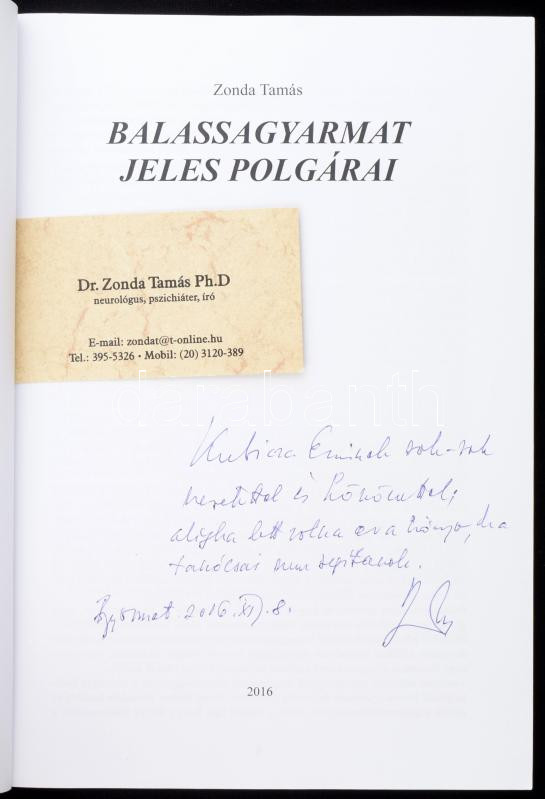 Zonda Tamás
BALASSAGYARMAT
JELES POLGÁRAI
Dr. Zonda Tamás Ph.D
neurológus, pszichiáter, író
E-mail: zondat@t-online.hu
Tel.: 395-5326 • Mobil: (20) 3120-389
darabanth
sok-sok
szeretettel és köszönettel,
aligha lett volna ez a könyv, ha
tanácsai nem segítenek.
2016. XII. 8.
2016